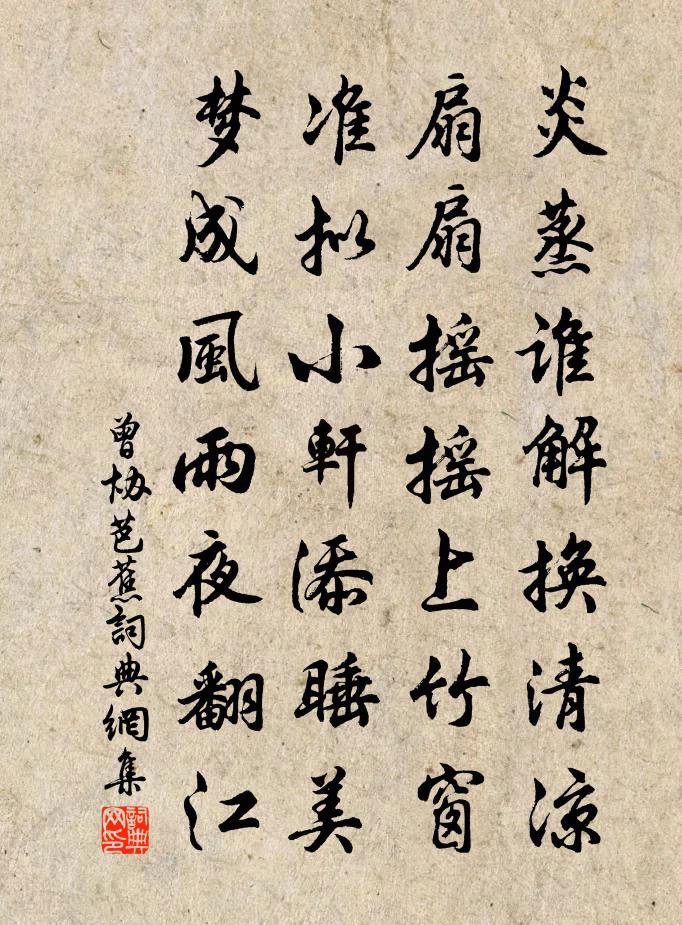 炎蒸谁解换清凉
扇扇摇摇上竹窗
准拟小軒添睡美
梦成風雨夜翻江
曾协芭蕉詞典網集
詞典网印